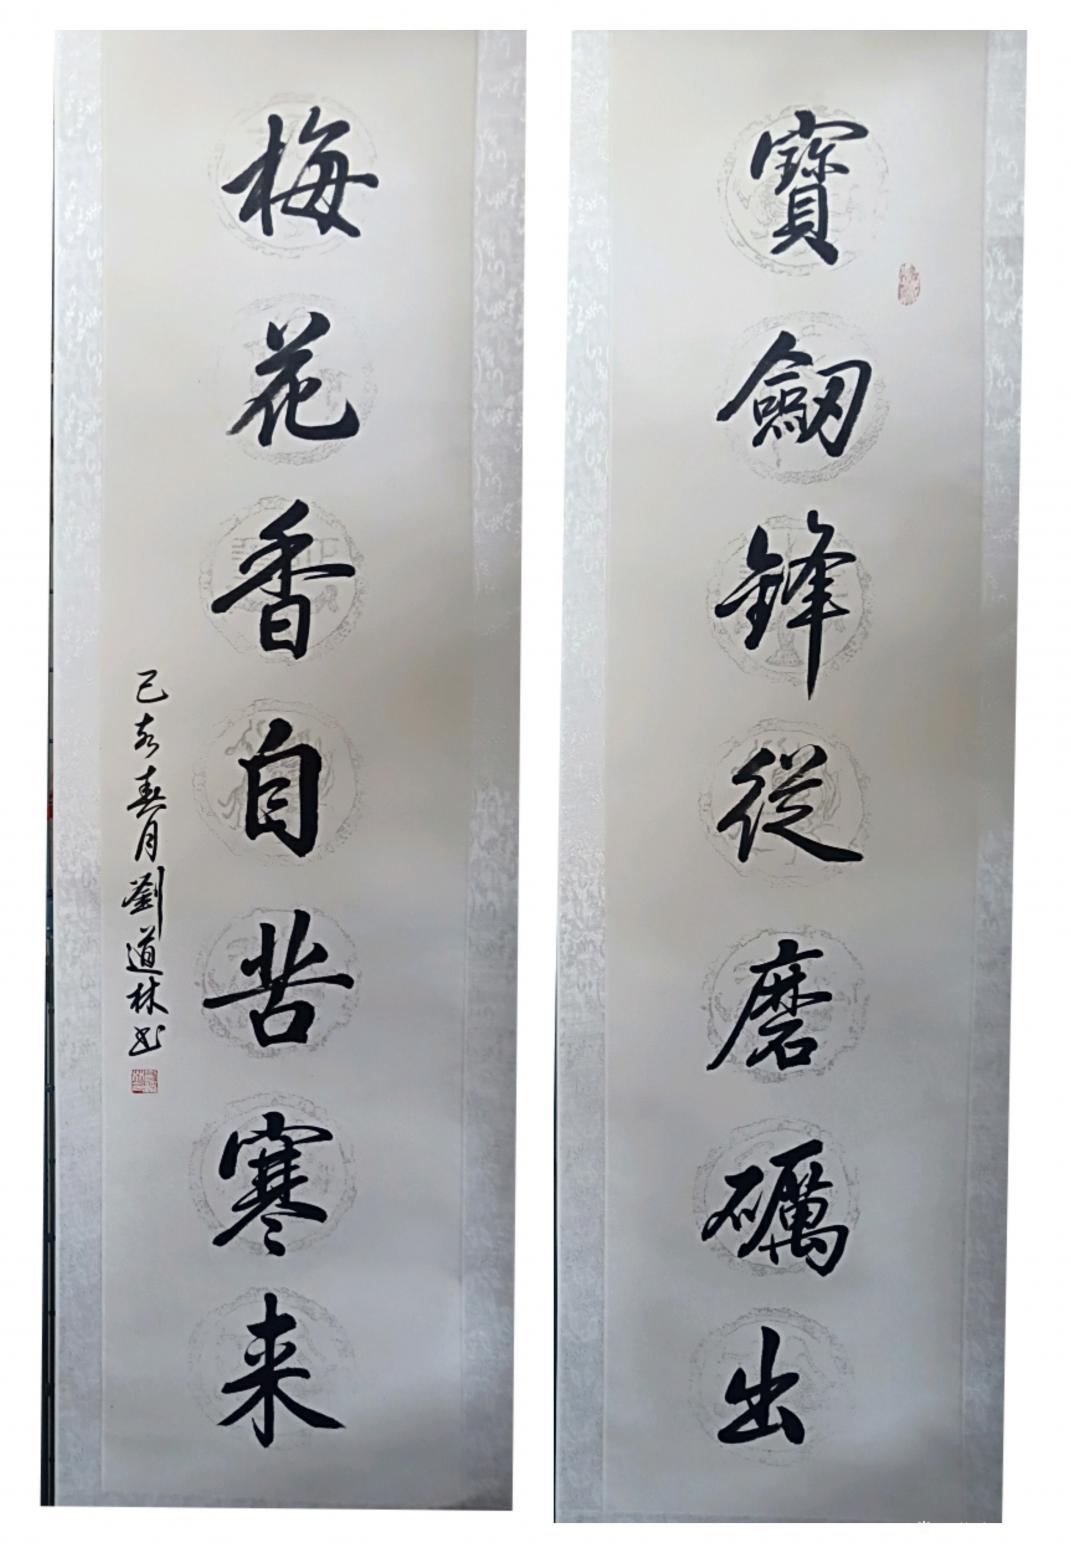 寶劔鋒從磨礪出
梅花香自苦寒来
己亥春月劉道林书